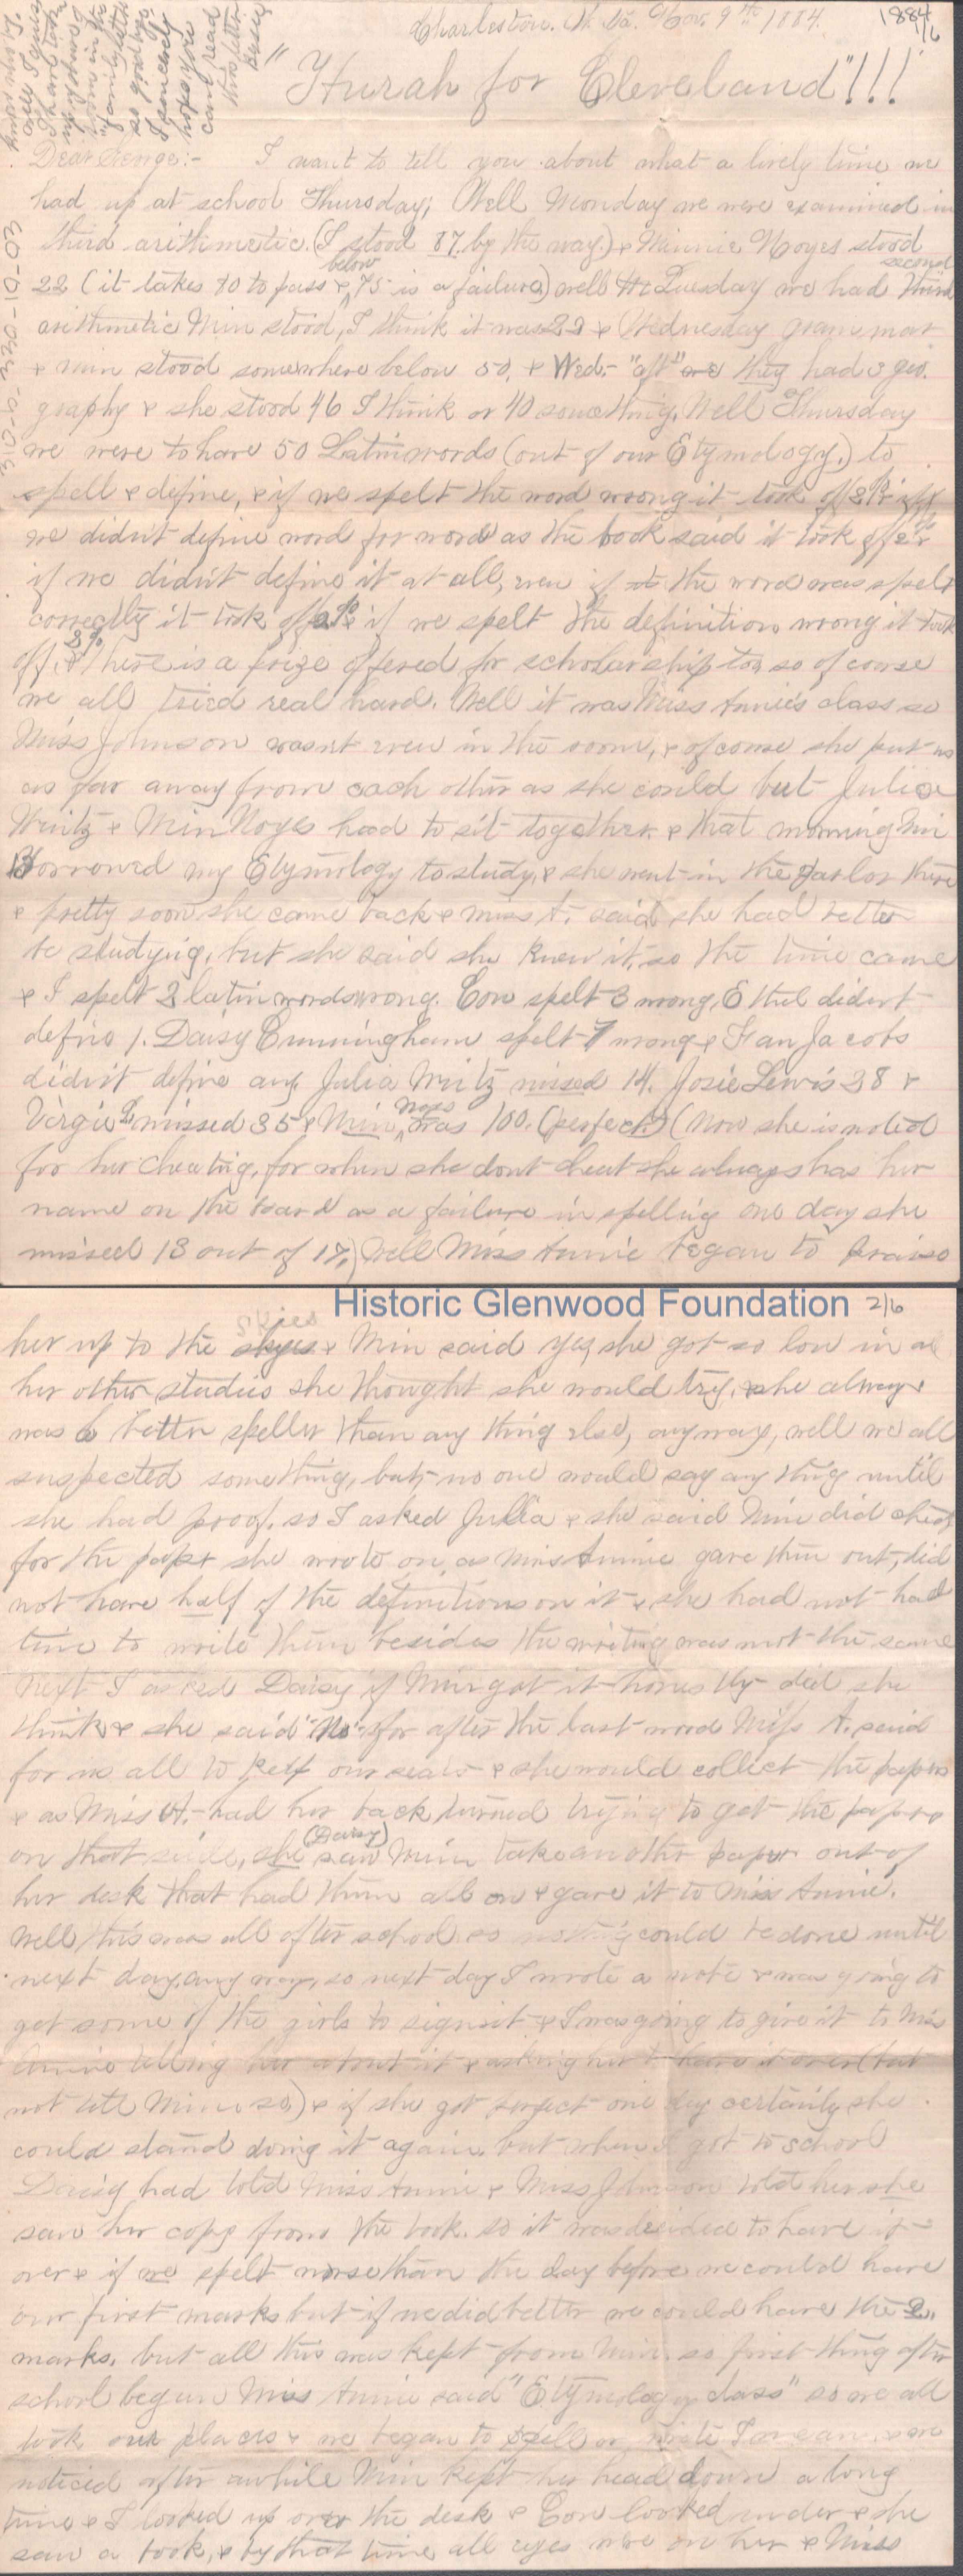 Charleston. W. Va. Nov. 9th 1884.
1884
1/6
"Hurah for Cleveland"!!!
I guess
in the
"family letter
so good bye.
I sincerely
hope you
can read
this letter
Bessie
30-01-023-0-013
Dear George:- I want to tell you about what a lively time we
had up at school Thursday; Well Monday we were examined in
third arithmetic. (I stood 87. by the way.) & Minnie Noyes stood
22 (it takes 80 to pass & below 75 is a failure) well Tuesday we had second
arithmetic Min stood, I think it was 22 & Wednesday grammar
& min stood somewhere below 50, & Wed.- "aft" they had geo.
graphy & she stood 46 I think or 40 something. Well Thursday
we were to have 50 Latin words (out of our Etymology.) to
spell & define, & if we spelt the word wrong it took off 2% & if
we didn't define word for word as the book said it took off
if we didn't define it at all, even if the word was spelt
correctly it took off & if we spelt the definition wrong it took
off 3% There is a prize offered for scholarship too so of course
we all tried real hard. Well it was Miss Annie's class so
Miss Johnson wasn't even in the room, & of course she put us
as far away from each other as she could but Julia
Wintz & Min Noyes had to sit together. & that morning Min
Borrowed my Etymology to study, & she went in the parlor there
& pretty soon she came back & miss A. said she had better
be studying, but she said she knew it, so the time came
& I spelt 2 latin words wrong. Con spelt 3 wrong, Ethel didn't
define 1. Daisy Cunningham spelt 7 wrong & Fan Jacobs
didn't define any Julia Wintz missed 14. Josie Lewis 28 &
Virgie L missed 35 & Min Noyes was 100. (perfect) (Now she is noted
for her cheating, for when she dont cheat she always has her
name on the board as a failure in spelling one day she
missed 13 out of 17.) Well Miss Annie began to praise
Historic Glenwood Foundation
2/6
her up to the skies & Min said yes, she got so low in all
her other studies she thought she would try, & she always
was a better speller than any thing else, anyway, well we all
suspected something, but no one would say any thing until
she had proof, so I asked Julia & she said Min did cheat
for the paper she wrote on, as Miss Annie gave them out, did
not have half of the definitions on it & she had not had
time to write them besides the writing was not the same
Next I asked Daisy if Min got it honestly did she
think & she said "No" for after the last word Miss A. said
for us all to keep our seats & she would collect the papers
& as Miss A.- had her back turned trying to get the papers
on that side, she (Daisy) saw Min take another paper out of
her desk that had them all on & gave it to Miss Annie.
Well this was all after school so nothing could be done until
next day, any way, so next day I wrote a note & was going to
get some of the girls to sign it & I was going to give it to Miss
Annie telling her about it & asking her to have it over (but
not tell Min so) & if she got perfect one day certainly she
could stand doing it again. but when I got to school
Daisy had told Miss Annie & Miss Johnson told her she
saw her copy from the book. so it was decided to have it
over & if we spelt worse than the day before we could have
our first marks but if we did better we could have the 2.
marks. but all this was kept from Min. so first thing after
school begun Miss Annie said "Etymology class" so we all
took our places & we began to spell or write I mean. & we
noticed after awhile Min kept her head down a long
time & I looked up over the desk & Con looked under & she
saw a book, & by that time all eyes were on her & Miss